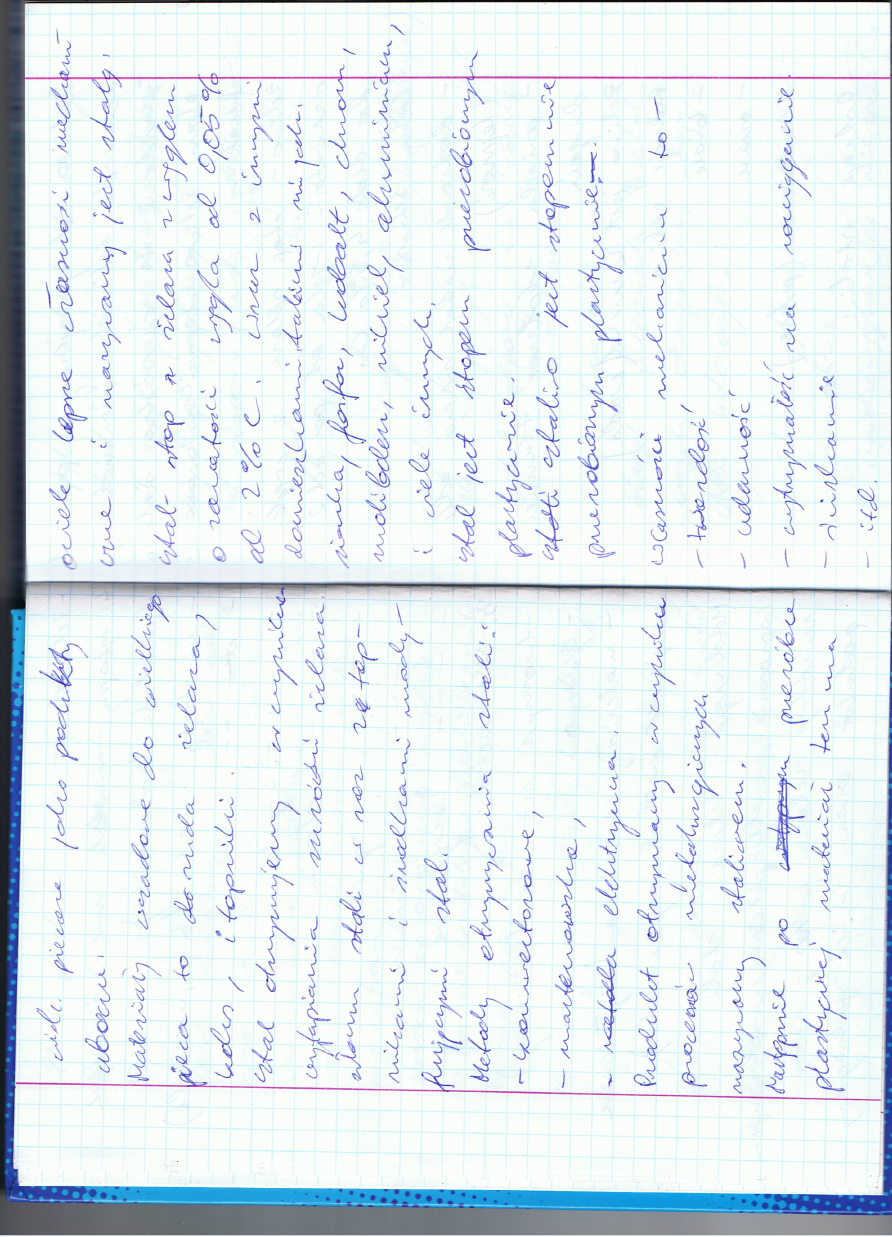 wlk. piecowe jako produkty
uboczne.
Materiały wsadowe do wielkiego
pieca to to ruda żelaza,
koks, i topniki.
stal otrzymujemy w wyniku
wytapiania surówki żelaza
złomu stali w raz z top-
nikami i środkami mody-
fikującymi stal.
Metody otrzymywania stali:
- konwertorowe,
- martenowska,
- elektryczna.
Produkt otrzymany w wyniku
procesów metalurgicznych
nazywamy staliwem.
Następnie po przeróbce
plastycznej materiał ten ma
o wiele lepsze własności mechani
czne i nazywany jest stalą.
stal - stop żelaza z węglem
o zawartości węgla od 0,05%
do 2% C. wraz z innymi
domieszkami takimi jak.
siarka, fosfor, kobalt, chrom,
molibden, nikiel, aluminium,
i wiele innych.
stal jest stopem przerobionym
plastycznie.
staliwo jest stopem nie
przerobionym plastycznie.
własności mechaniczne to -
- twardość
- udarność
- wytrzymałość na rozciąganie.
- ściskanie
- itd.